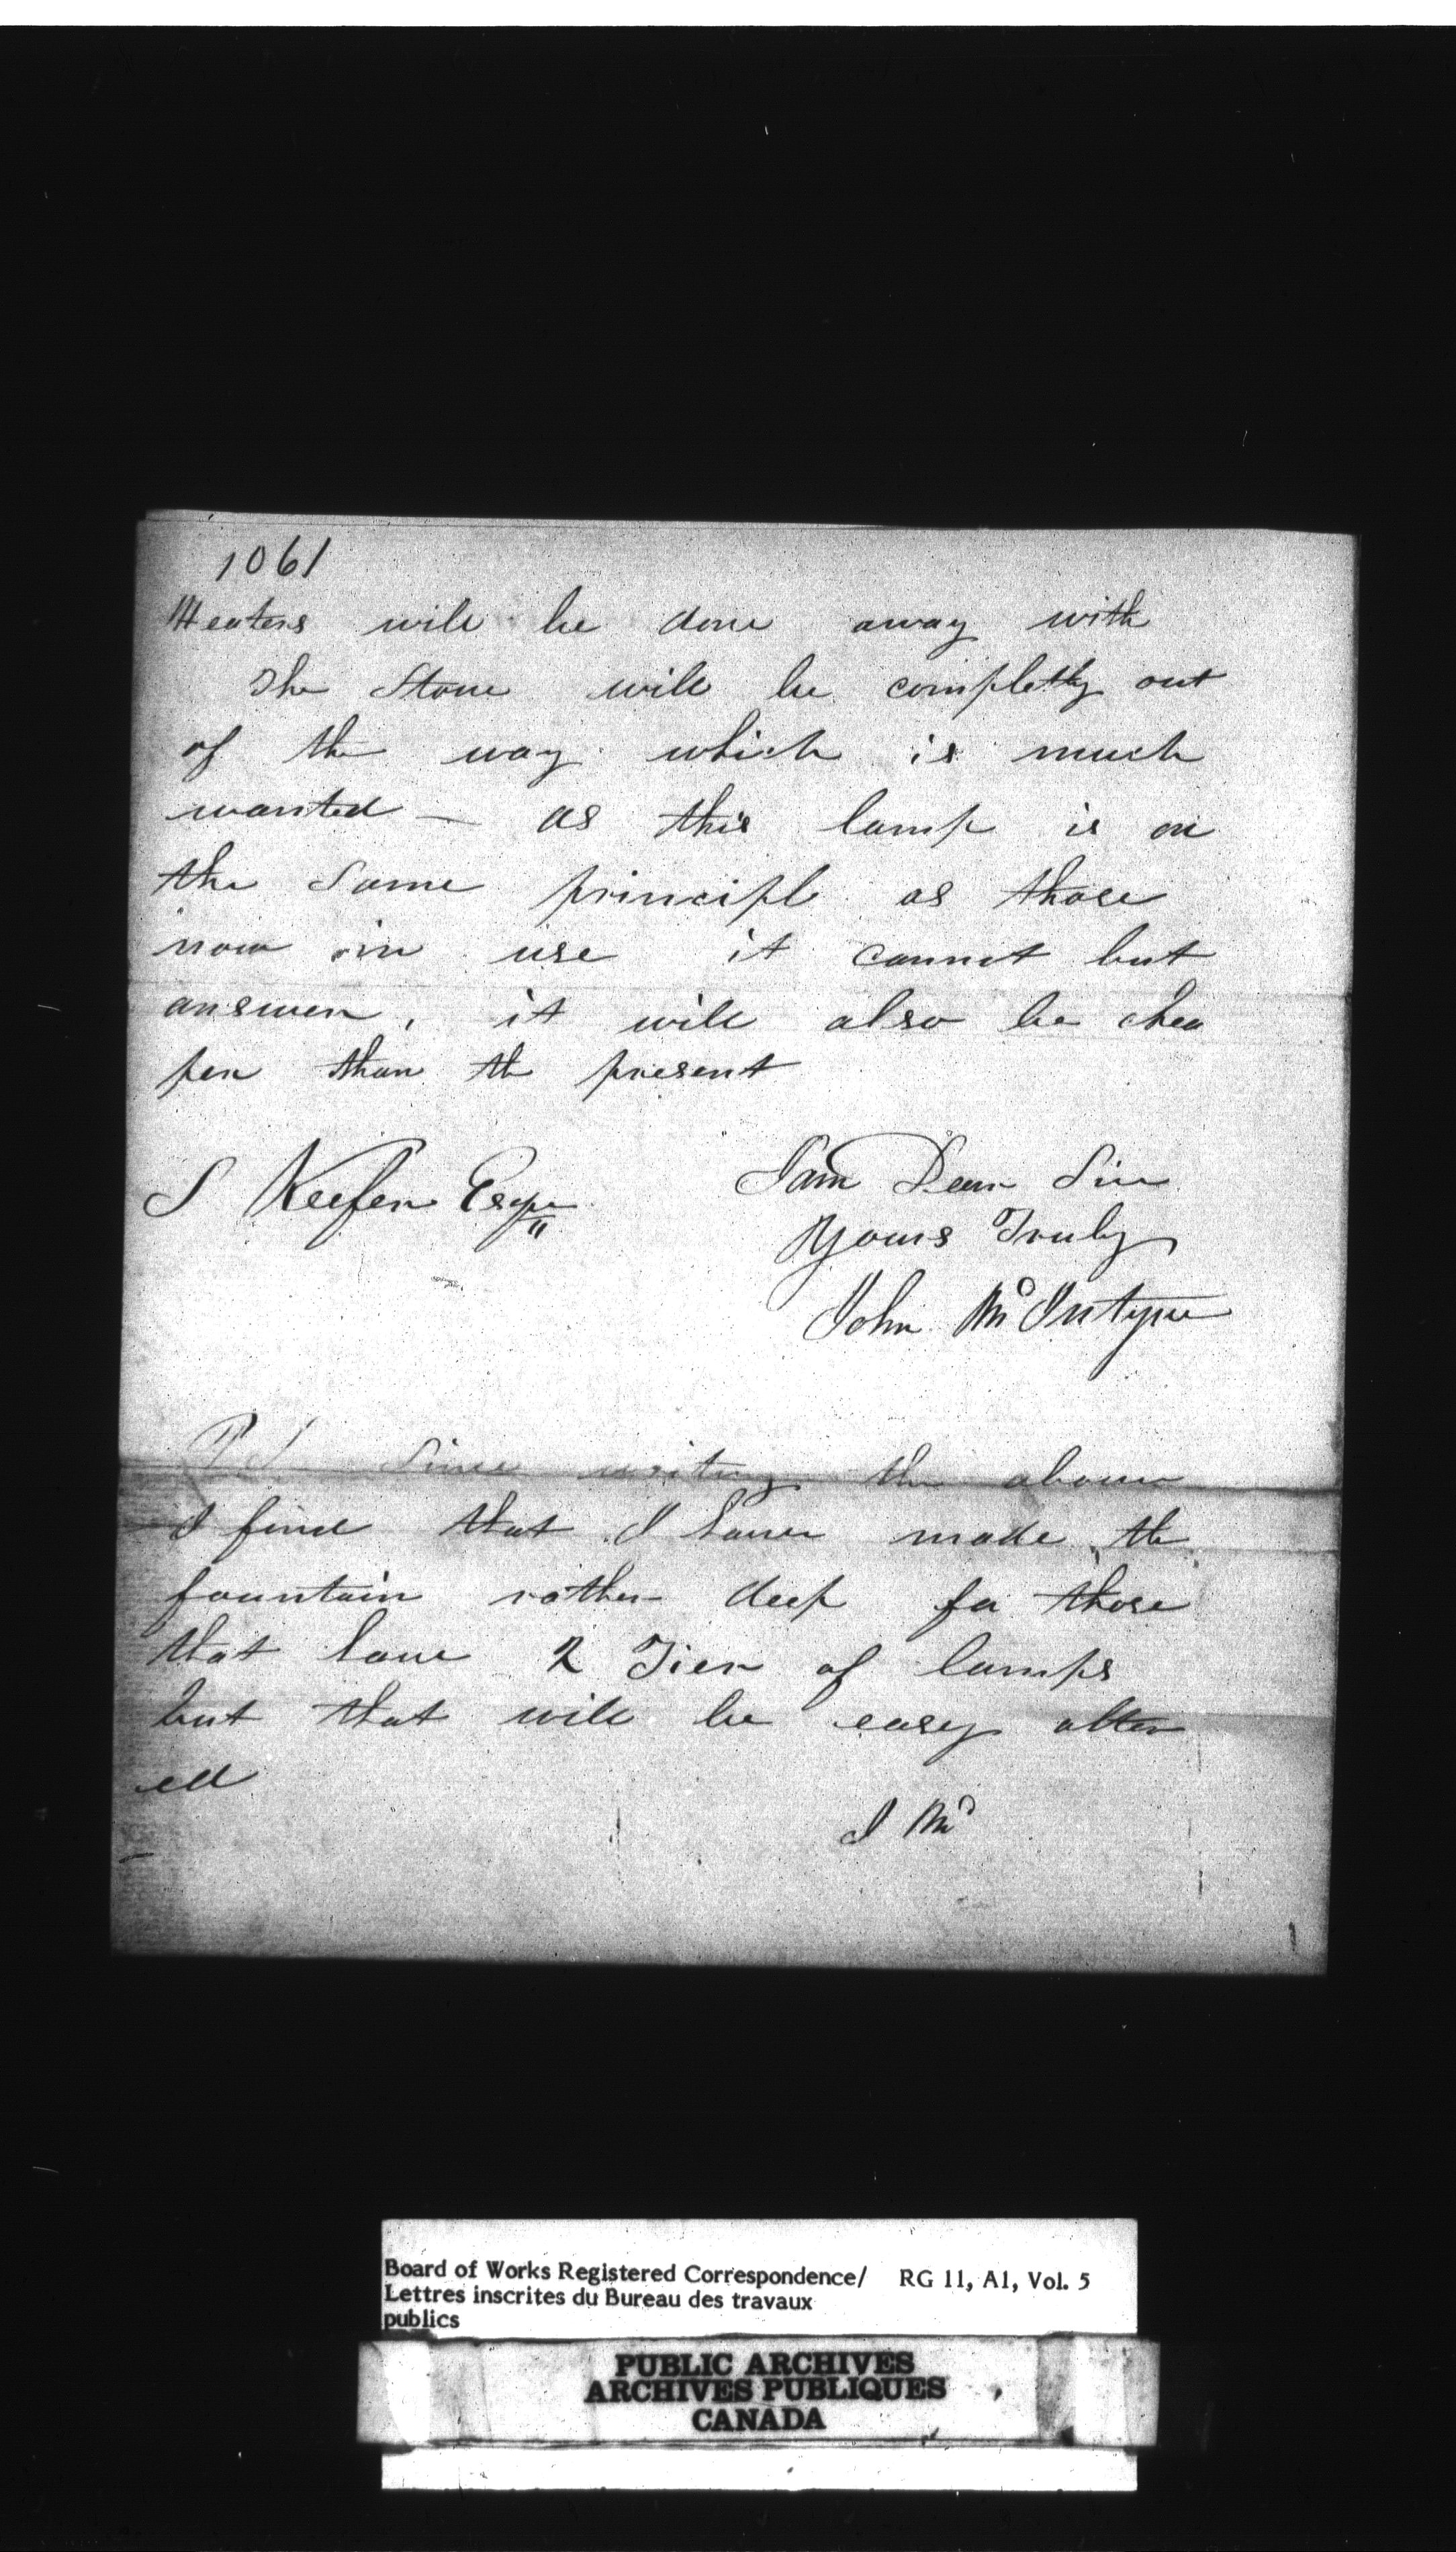 1061
Heaters will be done away with
The Stove will be completly out
of the way which is much
wanted — as this lamp is on
the Same principle as those
now in use it cannot but
answer, it will also be chea
per than the present
S Keefer Esqr
I am Dear Sir
Yours Truly
John McIntyre
P S Since writing the above
I find that I have made the
fountain rather deep for those
that have 2 Tier of lamps
but that will be easy alter
ed
J Mc
Board of Works Registered Correspondence/ RG 11, A1, Vol. 5
Lettres inscrites du Bureau des travaux
publics
PUBLIC ARCHIVES
ARCHIVES PUBLIQUES
CANADA